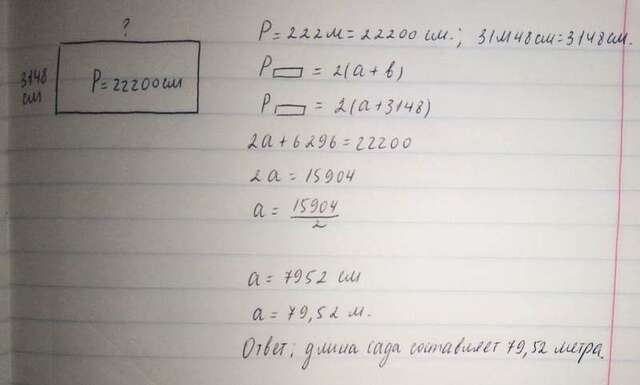 ?
3148 см
P = 22200 см
P = 222 м = 22200 см. ; 31м48см = 3148 см.
P▭ = 2(a + b)
P▭ = 2(a + 3148)
2a + 6296 = 22200
2a = 15904
a = 15904/2
a = 7952 см
a = 79,52 м.
Ответ; длина сада составляет 79,52 метра.